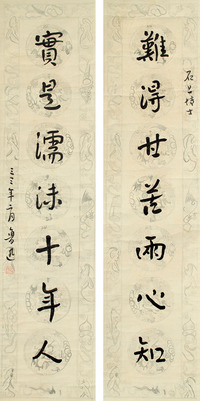 石公博士
難得甘苦兩心知
實是濡沫十年人
三三年二月魯迅